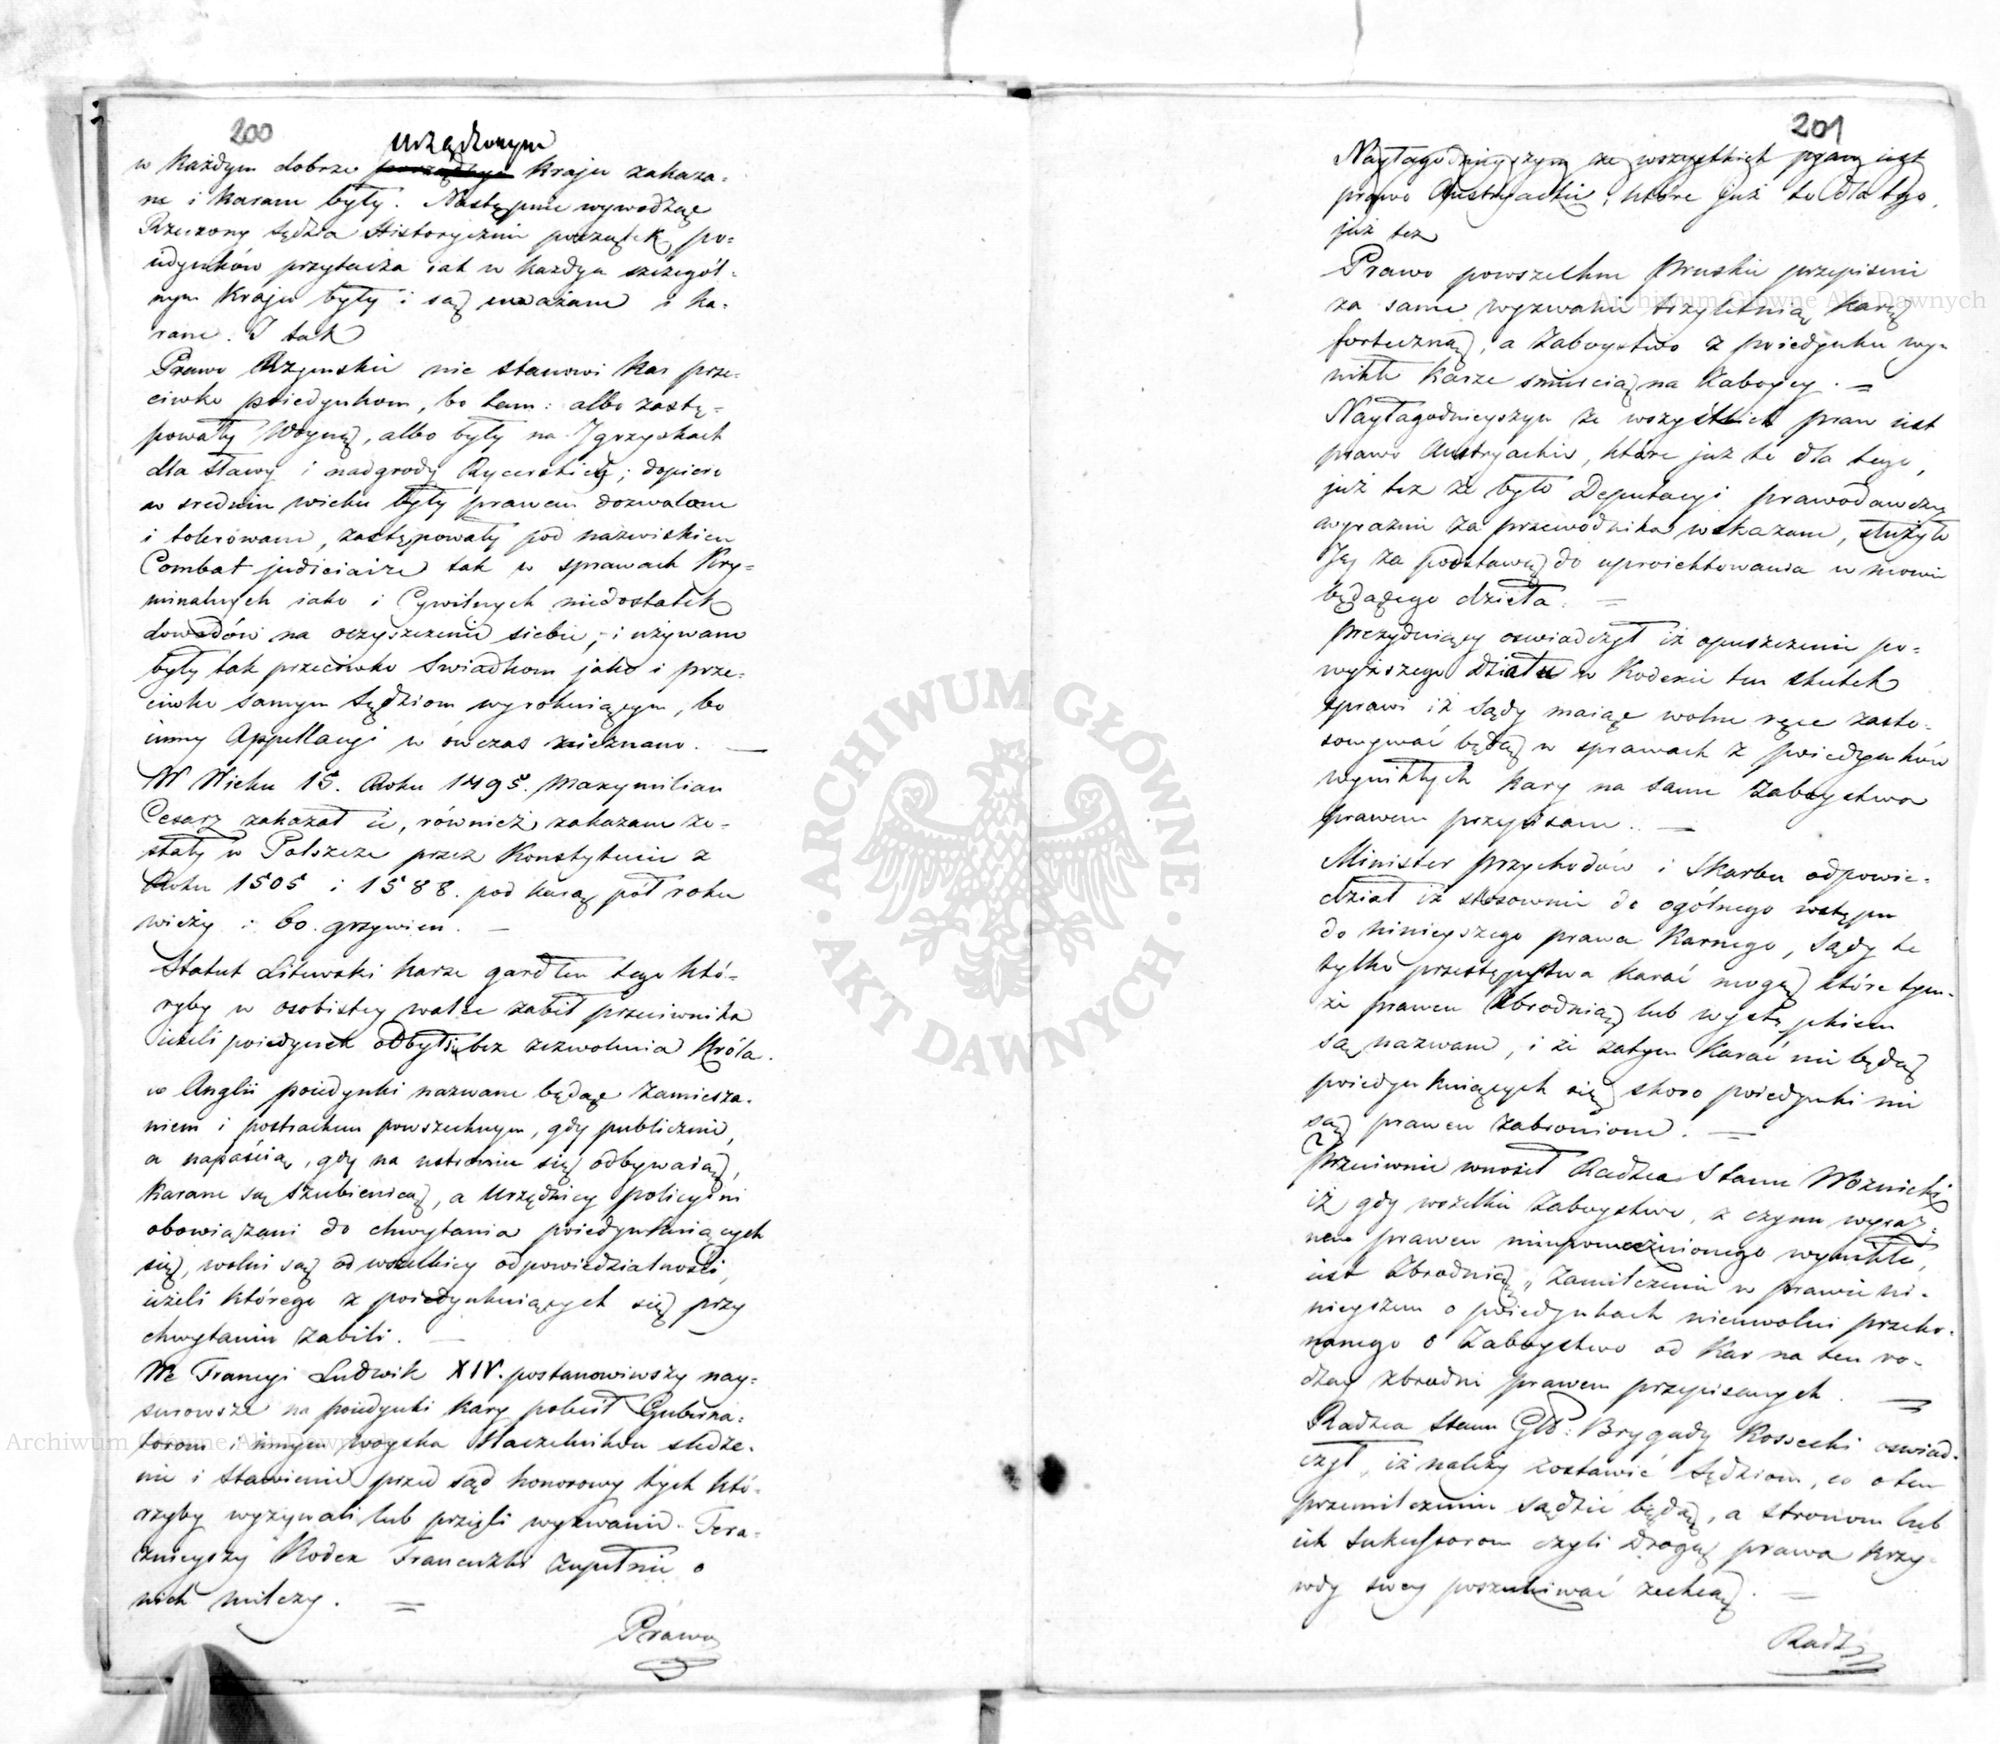 200
urządzonym
w każdym dobrze porządnym kraju zakaza-
ne i karane były. Następnie wywodząc
Rzeczony sędzia Historycznie początek po-
iedynków przytacza iak w każdym szczegól-
nym kraju były i są uważane i ka-
rane. I tak
Prawo Rzymskie nie stanowi kar prze-
ciwko poiedynkom, bo tam: albo zastę-
powały Woynę, albo były na Igrzyskach
dla sławy i nadgrody Rycerskiey; dopiero
w srednim wieku były prawem dozwolone
i tolerowane, zastępowały pod nazwiskiem
Combat judiciaire tak w sprawach Kry-
minalnych iako i Cywilnych niedostatek
dowodów na oczyszczenie siebie; i używane
były tak przeciwko Swiadkom jako i prze-
ciwko samym Sędziom wyrokuiącym, bo
inney Appellacyi w ówczas nieznano. —
W Wieku 15. Roku 1495. Maxymilian
Cesarz zakazał ie, również zakazane zo-
stały w Polszcze przez Konstytucie z
Roku 1505 i 1588. pod karą pół roku
wieży i 60. grzywien. —
Statut Litewski karze gardłem tego któ-
ryby w osobistey walce zabił przeciwnika
ieżeli poiedynek odbył się bez zezwolenia Króla.
w Anglii poiedynki nazwane będąc zamiesza-
niem i postrachem powszechnym, gdy publicznie,
a napaścią, gdy na ustroniu się odbywaią,
karane są szubienicą, a Urzędnicy policyini
obowiązani do chwytania poiedynkuiących
się, wolni są od wszelkiey odpowiedzialności,
ieżeli którego z poiedynkuiących się przy
chwytaniu zabili. —
We Francyi Ludwik XIV. postanowiwszy nay-
surowsze na poiedynki kary polecił Guberna-
torom i innym woyska Naczelnikom sledze-
nie i stawienie przed sąd honorowy tych któ-
rzyby wyzywali lub przyięli wyzwanie. Tera-
źnieyszy Kodex Francuzki zupełnie o
nich milczy. =
Prawo
201
Nayłagodnieyszym ze wszystkich praw iest
prawo Austryackie, które już to dla tego,
już też
Prawo powszechne Pruskie przepisuie
za same wyzwanie trzyletnią karę
forteczną, a zaboystwo z poiedynku wy-
nikłe karze smiercią na zaboycy. =
Nayłagodnieyszym ze wszystkich praw iest
prawo Austryackie, które już to dla tego,
już też że było Deputacyi prawodawczey
wyraźnie za przewodnika wskazane, służyło
Jey za podstawę do uproiektowania w mowie
będącego dzieła. =
Prezyduiący oswiadczył iż opuszczenie po-
wyższego działu w Kodexie ten skutek
sprawi iż Sądy maiąc wolne ręce zasto-
sowywać będą w sprawach z poiedynków
wynikłych kary na same zaboystwa
prawem przepisane. —
Minister Przychodów i Skarbu odpowie-
dział iż stosownie do ogólnego wstępu
do ninieyszego prawa karnego, Sądy te
tylko przestępstwa karać mogą które tym-
że prawem zbrodnią lub występkiem
są nazwane, i że zatym karać nie będą
poiedynkuiących się, skoro poiedynki nie
są prawem zabronione. —
Przeciwnie wnosił Radzca Stanu Woznicki
iż gdy wszelkie zaboystwo, z czynu wyraź-
nem prawem nieupoważnionego wynikłe,
iest zbrodnią, zamilczenie w prawie ni-
nieyszem o poiedynkach nieuwolni przeko-
nanego o zaboystwo od kar na ten ro-
dzay zbrodni prawem przepisanych. =
Radzca Stanu Gło: Brygady Kossecki oswiad-
czył, iż należy zostawić Sędziom, co o tem
przemilczeniu sądzić będą, a stronom lub
ich Sukcessorom czyli drogą prawa krzy-
wdy swey poszukiwać zechcą. =
Radz
Archiwum Główne Akt Dawnych
Archiwum Główne Akt Dawnych
ARCHIWUM GŁÓWNE AKT DAWNYCH